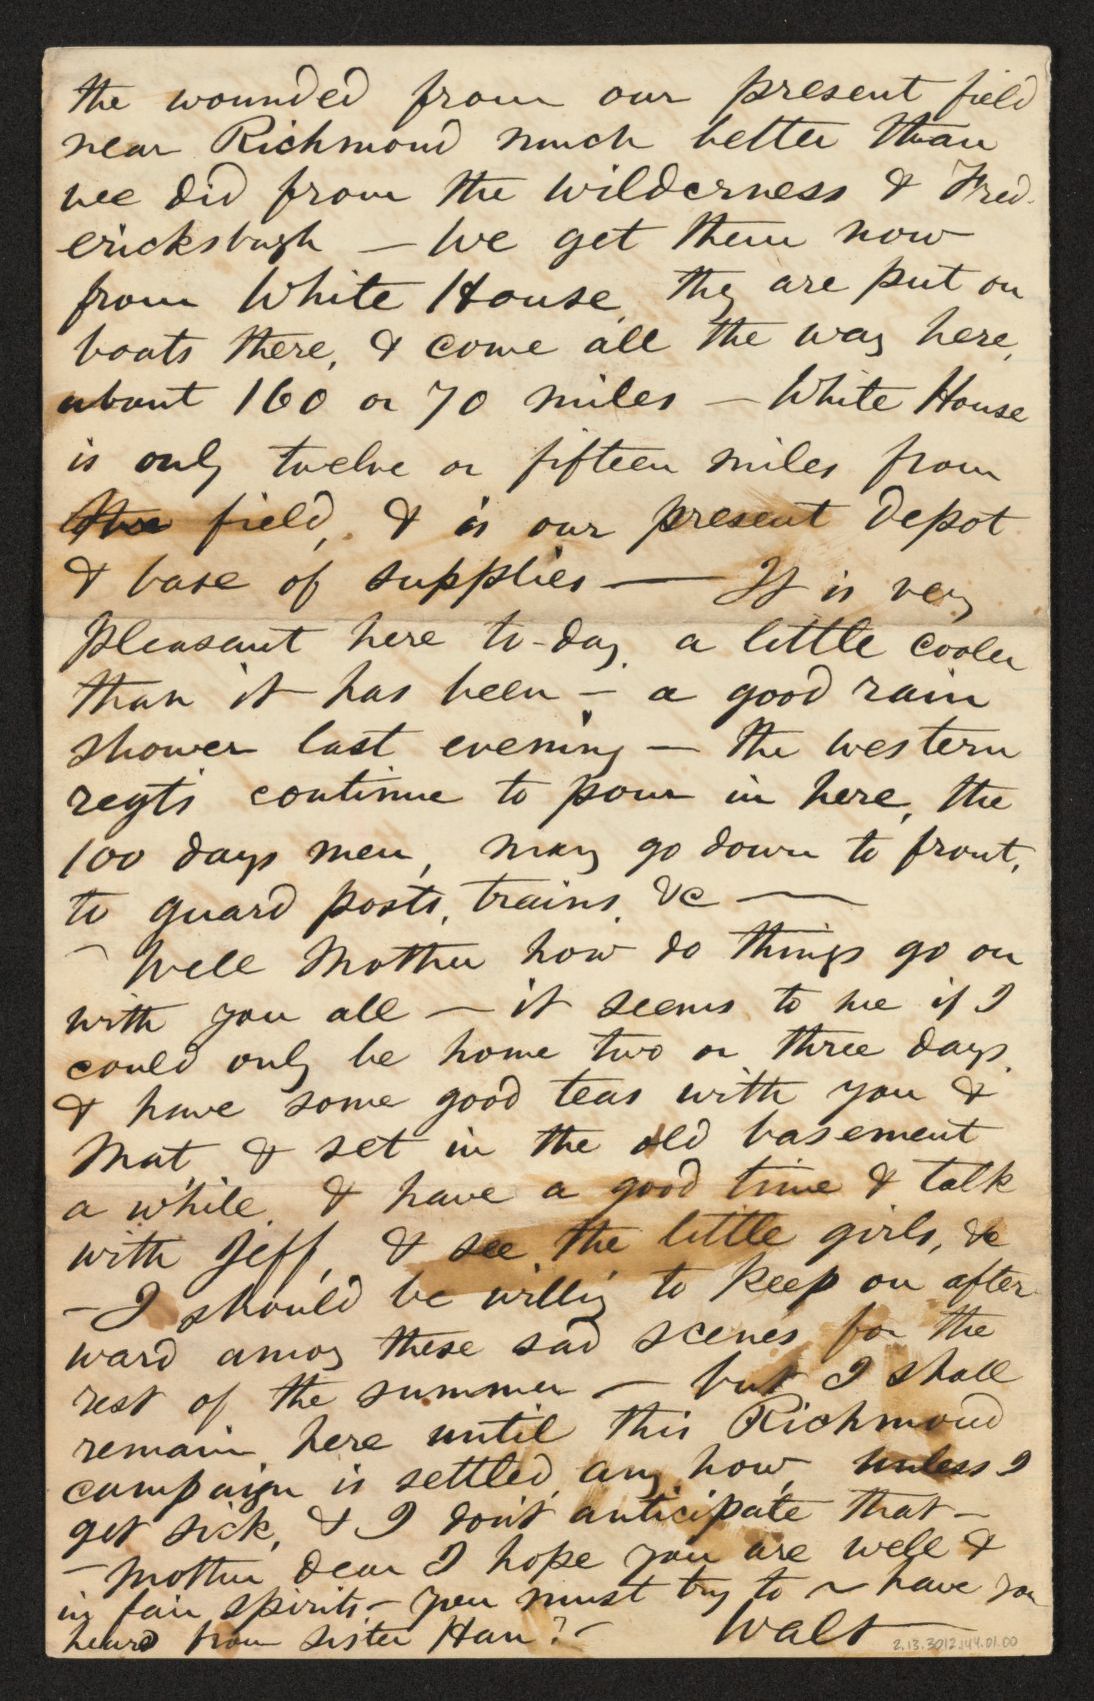 the wounded from our present field
near Richmond much better than
we did from the wilderness & Fred-
ericksburgh — We get them now
from White House, they are put on
boats there, & come all the way here,
about 160 or 70 miles — White House
is only twelve or fifteen miles from
the field, & is our present depot
& base of supplies — It is very
pleasant here to-day, a little cooler
than it has been — a good rain
shower last evening — the western
regts continue to pour in here, the
100 days men, may go down to front,
to guard posts, trains, &c —
— Well Mother how do things go on
with you all — it seems to me if I
could only be home two or three days,
& have some good teas with you &
Mat & set in the old basement
a while, & have a good time & talk
with Jeff, & see the little girls, &c
— I should be willing to keep on after-
ward among these sad scenes for the
rest of the summer — but I shall
remain here until this Richmond
campaign is settled, any how, unless I
get sick, & I don't anticipate that —
— Mother dear I hope you are well &
in fair spirits — you must try to — have you
heard from sister Han? — Walt
2.13.3012.144.01.00